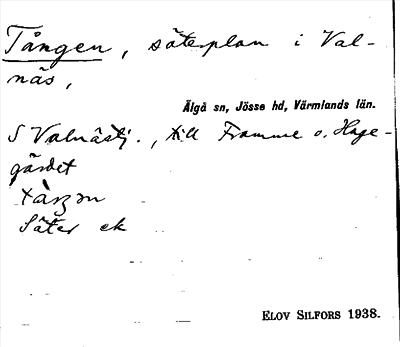 Tången, säterplan i Val-
näs,
Älgå sn, Jösse hd, Värmlands län.
S Valnästj., till Framme o. Hage-
gärdet
Säter ek
ELOV SILFORS 1938.